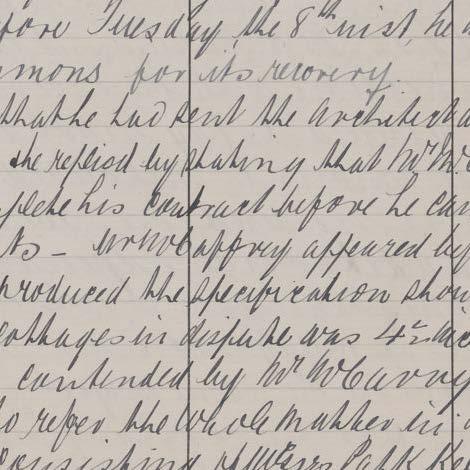 fore Tuesday the 8th inst, he
mmons for its recovery.
that he had sent the architect a
he replied by stating that Mr Mc
plete his contract before he can
ts - Mr McCaffrey appeared by
produced the specification show
cottages in dispute was 42
contended by Mr McCarvey
to refer the whole matter in
consisting of Messrs Patk